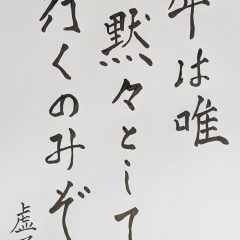 牛は唯
黙々として
行くのみぞ
虚子